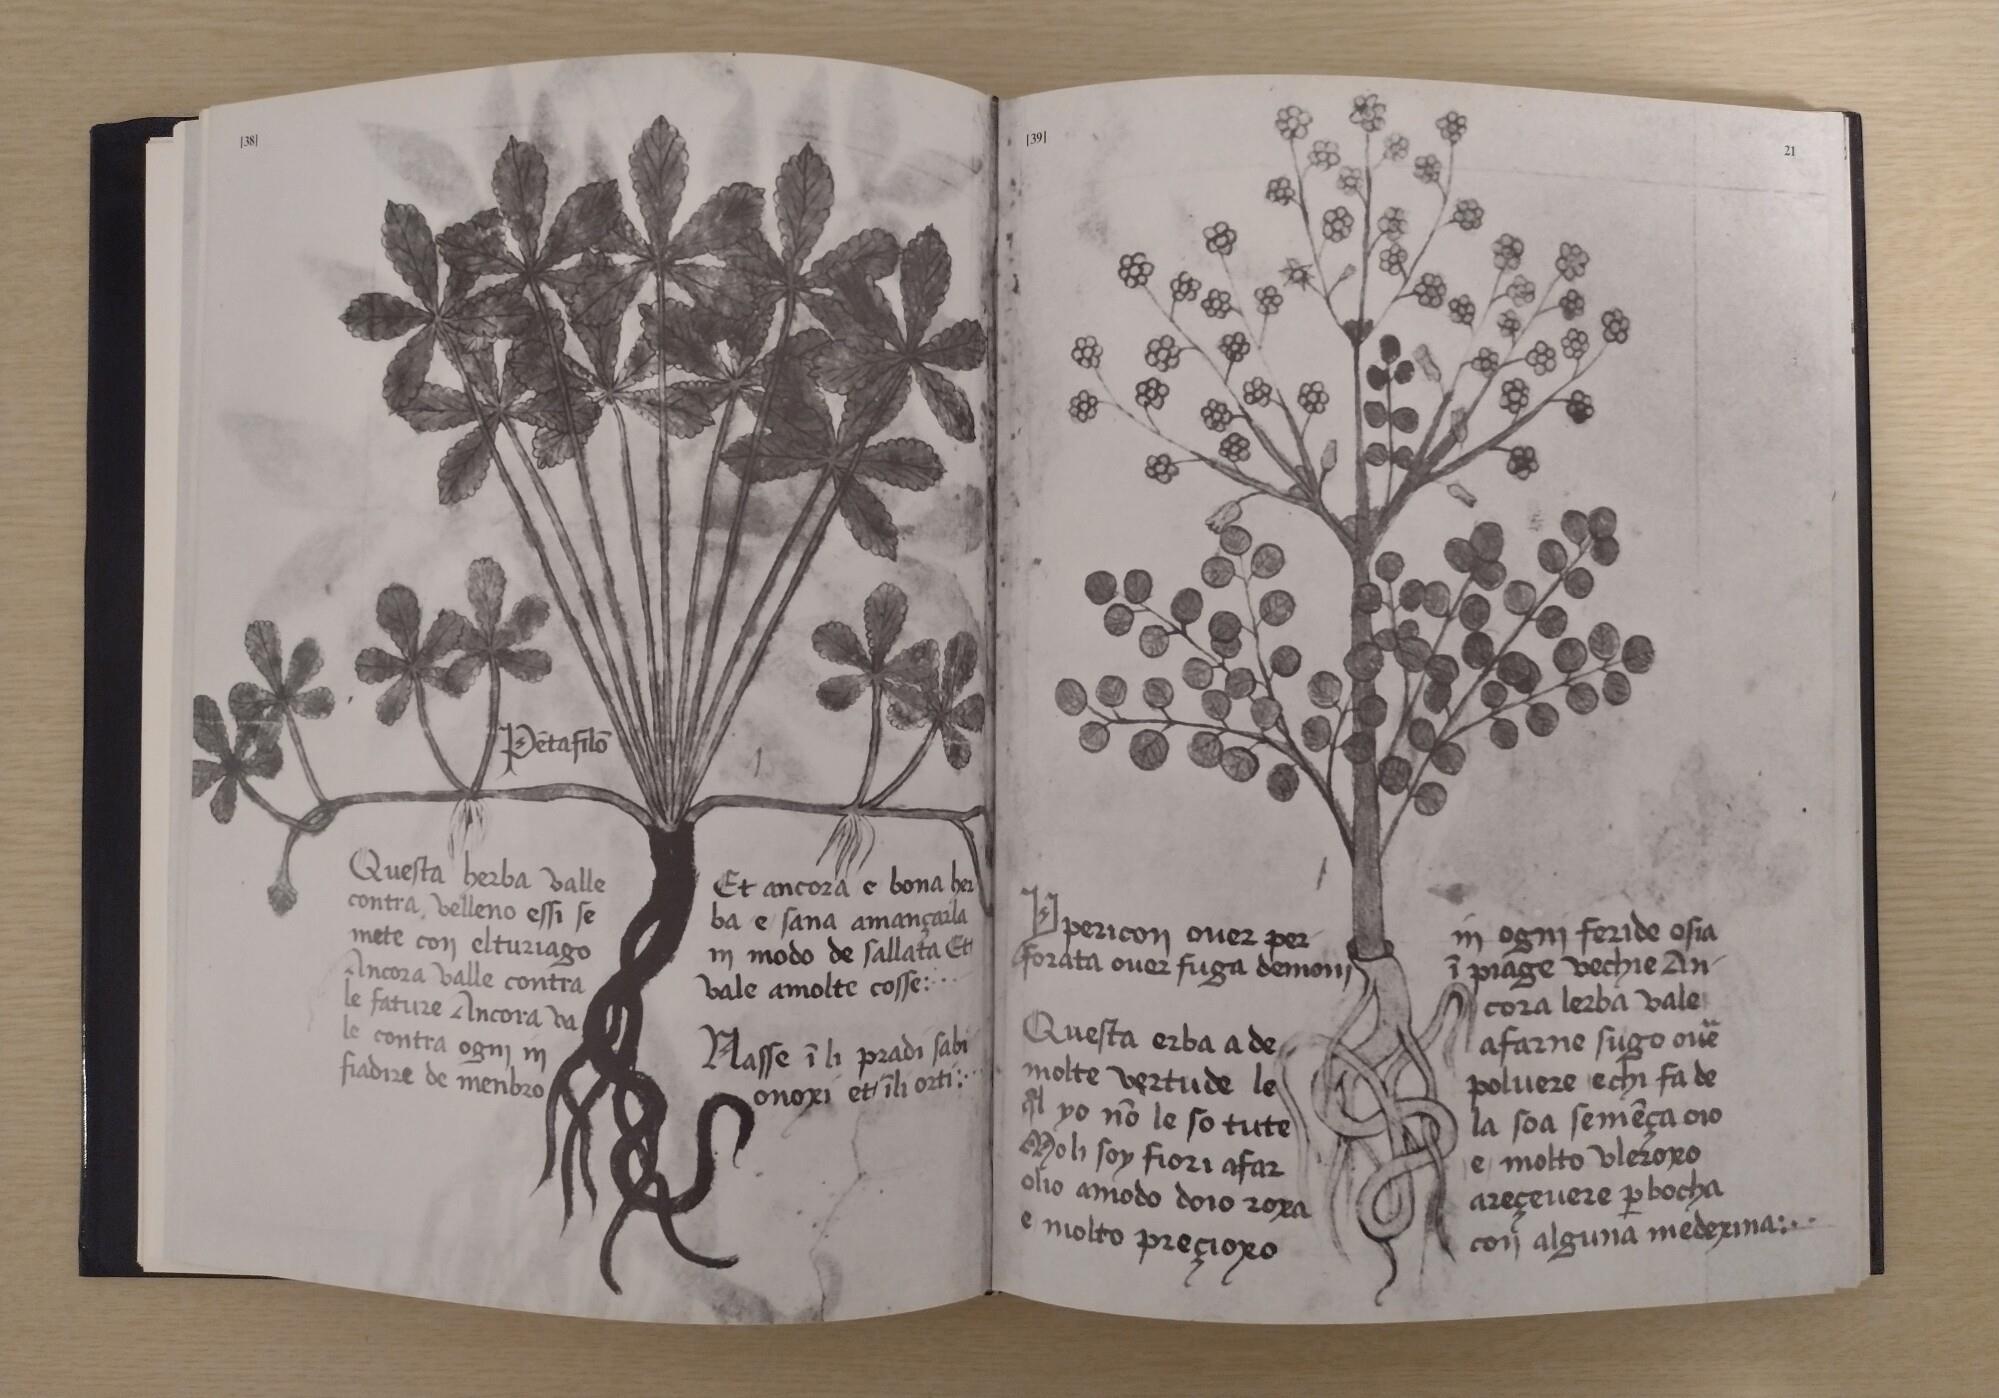 [38]
Pētafilō
Questa herba valle
contra velleno essi se
mete con elturiago
Ancora valle contra
le fature Ancora va
le contra ogni in
fiadire de menbro
Et ancora e bona her
ba e sana amançarla
in modo de sallata Et
vale amolte cosse:···
Nasse ī li pradi sabi
onoxi et īli orti:··
[39]
21
Ypericon ouer per
forata ouer fuga demonij
Questa erba a de
molte vertude le
yo nō le so tute
Moli soy fiori afar
olio amodo doio roxa
e molto preçioxo
in ogni feride osia
ī piage vechie An
cora lerba vale
afarne sugo ouē
poluere echi fa de
la soa semēça oio
e molto vleroxo
areçeuere ꝑ bocha
con alguna medexina:···